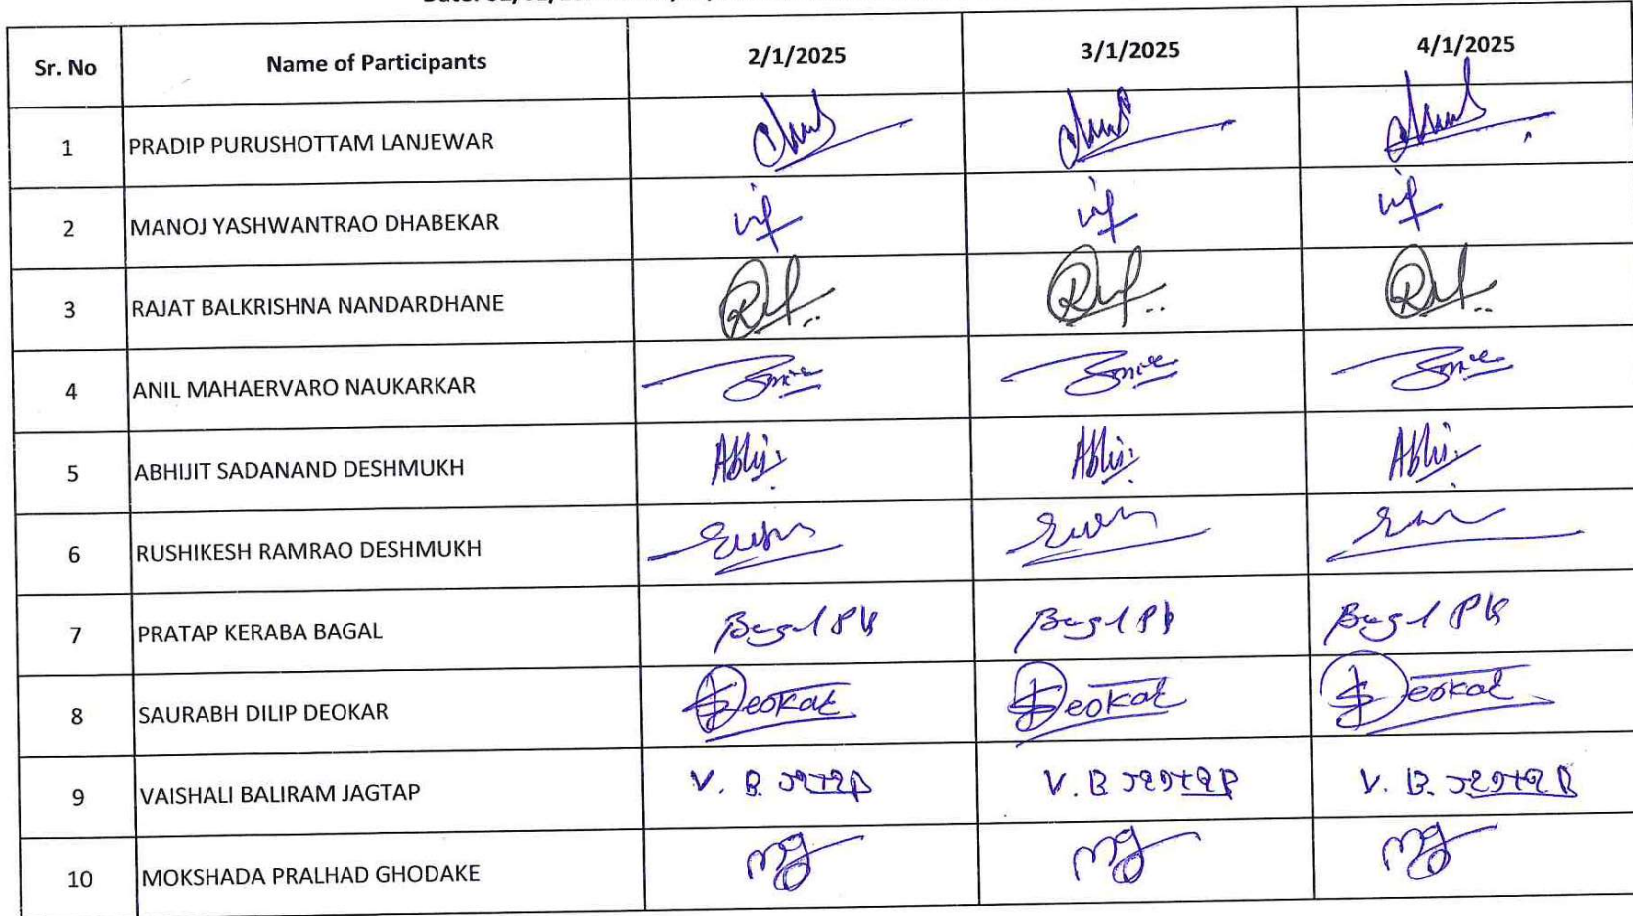 Sr. No Name of Participants 2/1/2025 3/1/2025 4/1/2025
1 PRADIP PURUSHOTTAM LANJEWAR
2 MANOJ YASHWANTRAO DHABEKAR
3 RAJAT BALKRISHNA NANDARDHANE
4 ANIL MAHAERVARO NAUKARKAR
5 ABHIJIT SADANAND DESHMUKH Abhi Abhi Abhi
6 RUSHIKESH RAMRAO DESHMUKH
7 PRATAP KERABA BAGAL Bagal PK Bagal PK Bagal PK
8 SAURABH DILIP DEOKAR Deokar Deokar Deokar
9 VAISHALI BALIRAM JAGTAP V. B. Jagtap V. B Jagtap V. B. Jagtap
10 MOKSHADA PRALHAD GHODAKE mg mg mg